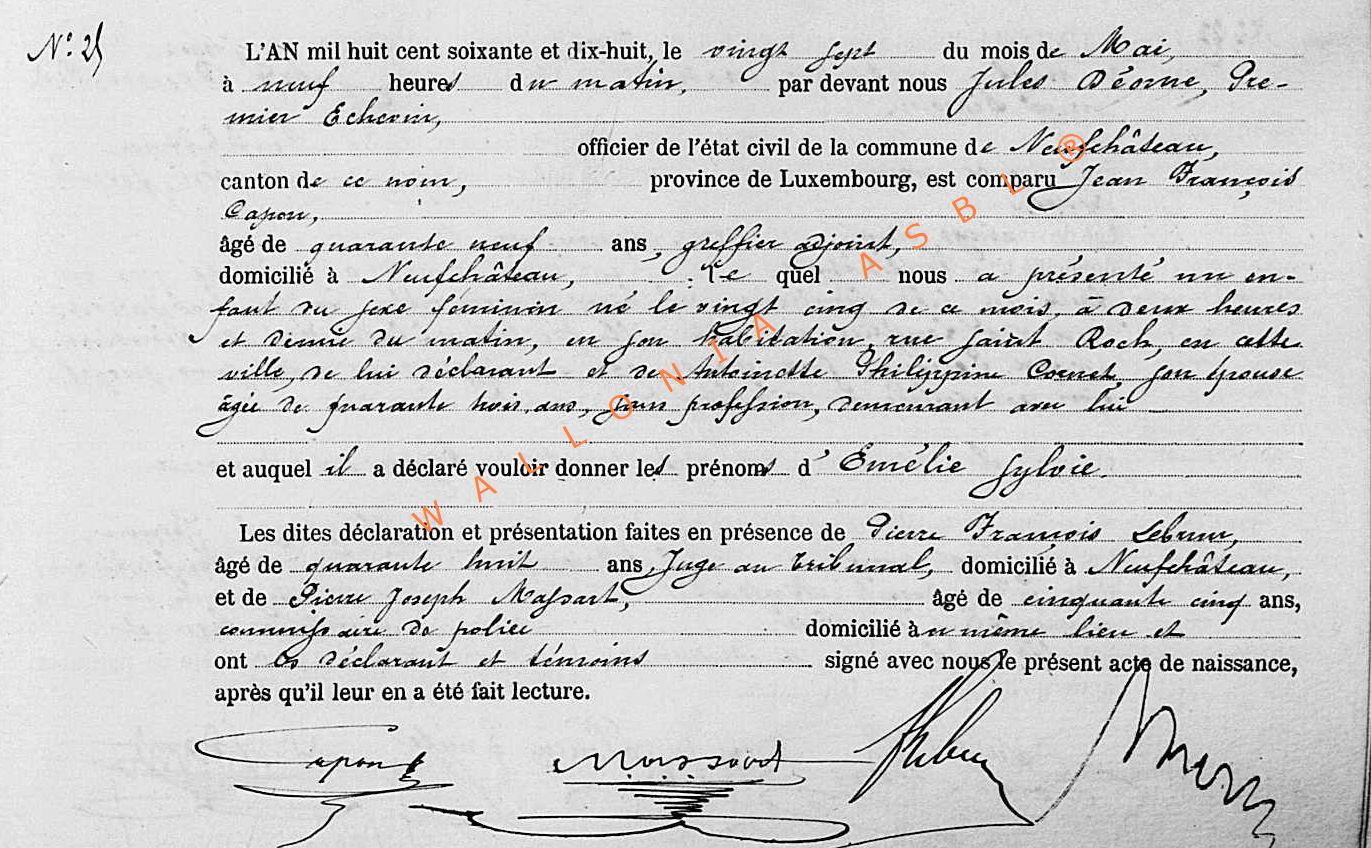 N° 25
L'AN mil huit cent soixante et dix-huit, le vingt sept du mois de Mai,
à neuf heures du matin, par devant nous Jules Déome, Pre-
mier Echevin,
officier de l'état civil de la commune de Neufchâteau,
canton de ce nom, province de Luxembourg, est comparu Jean François
Capon,
âgé de quarante neuf ans, greffier adjoint,
domicilié à Neufchâteau, : Le quel nous a présenté un en-
fant du sexe féminin né le vingt cinq de ce mois, à deux heures
et demie du matin, en son habitation, rue saint Roch, en cette
ville, de lui déclarant et de Antoinette Philippine Cornet son épouse
âgée de quarante trois ans, sans profession, demeurant avec lui
et auquel il a déclaré vouloir donner les prénoms d' Emélie Sylvie.
Les dites déclaration et présentation faites en présence de Pierre François Lebrun,
âgé de quarante huit ans, Juge au tribunal, domicilié à Neufchâteau,
et de Pierre Joseph Massart, âgé de cinquante cinq ans,
commissaire de police domicilié au même lieu et
ont les déclarant et témoins signé avec nous le présent acte de naissance,
après qu'il leur en a été fait lecture.
Capon Massart
WALLONIA ASBL ®